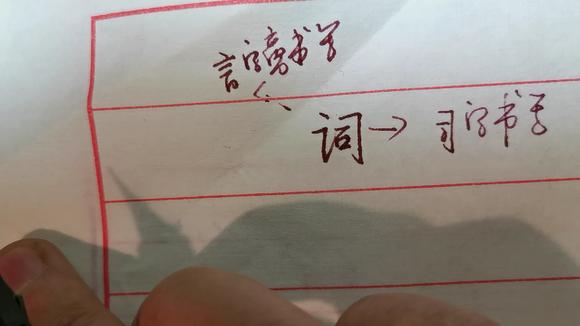 言字旁书写
词→司字书写